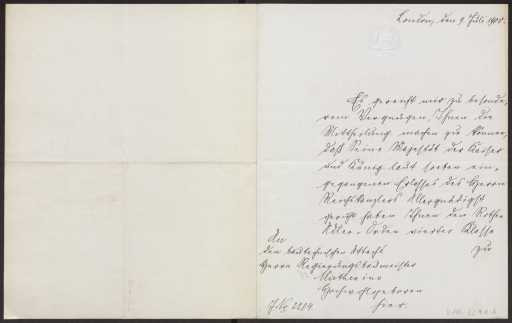 London, den 9 Juli 1908.
Es gereicht mir zu besonde-
rem Vergnügen, Ihnen die
Mittheilung machen zu können,
daß Seine Majestät der Kaiser
und König laut soeben ein-
gegangenen Erlasses des Herrn
Reichskanzlers Allergnädigst
geruht haben Ihnen den Rothen
Adler-Orden vierter Klasse
zu
An
den bautechnischen Attaché
Herrn Regierungsbaumeister
Muthesius
Hochwohlgeboren
hier.